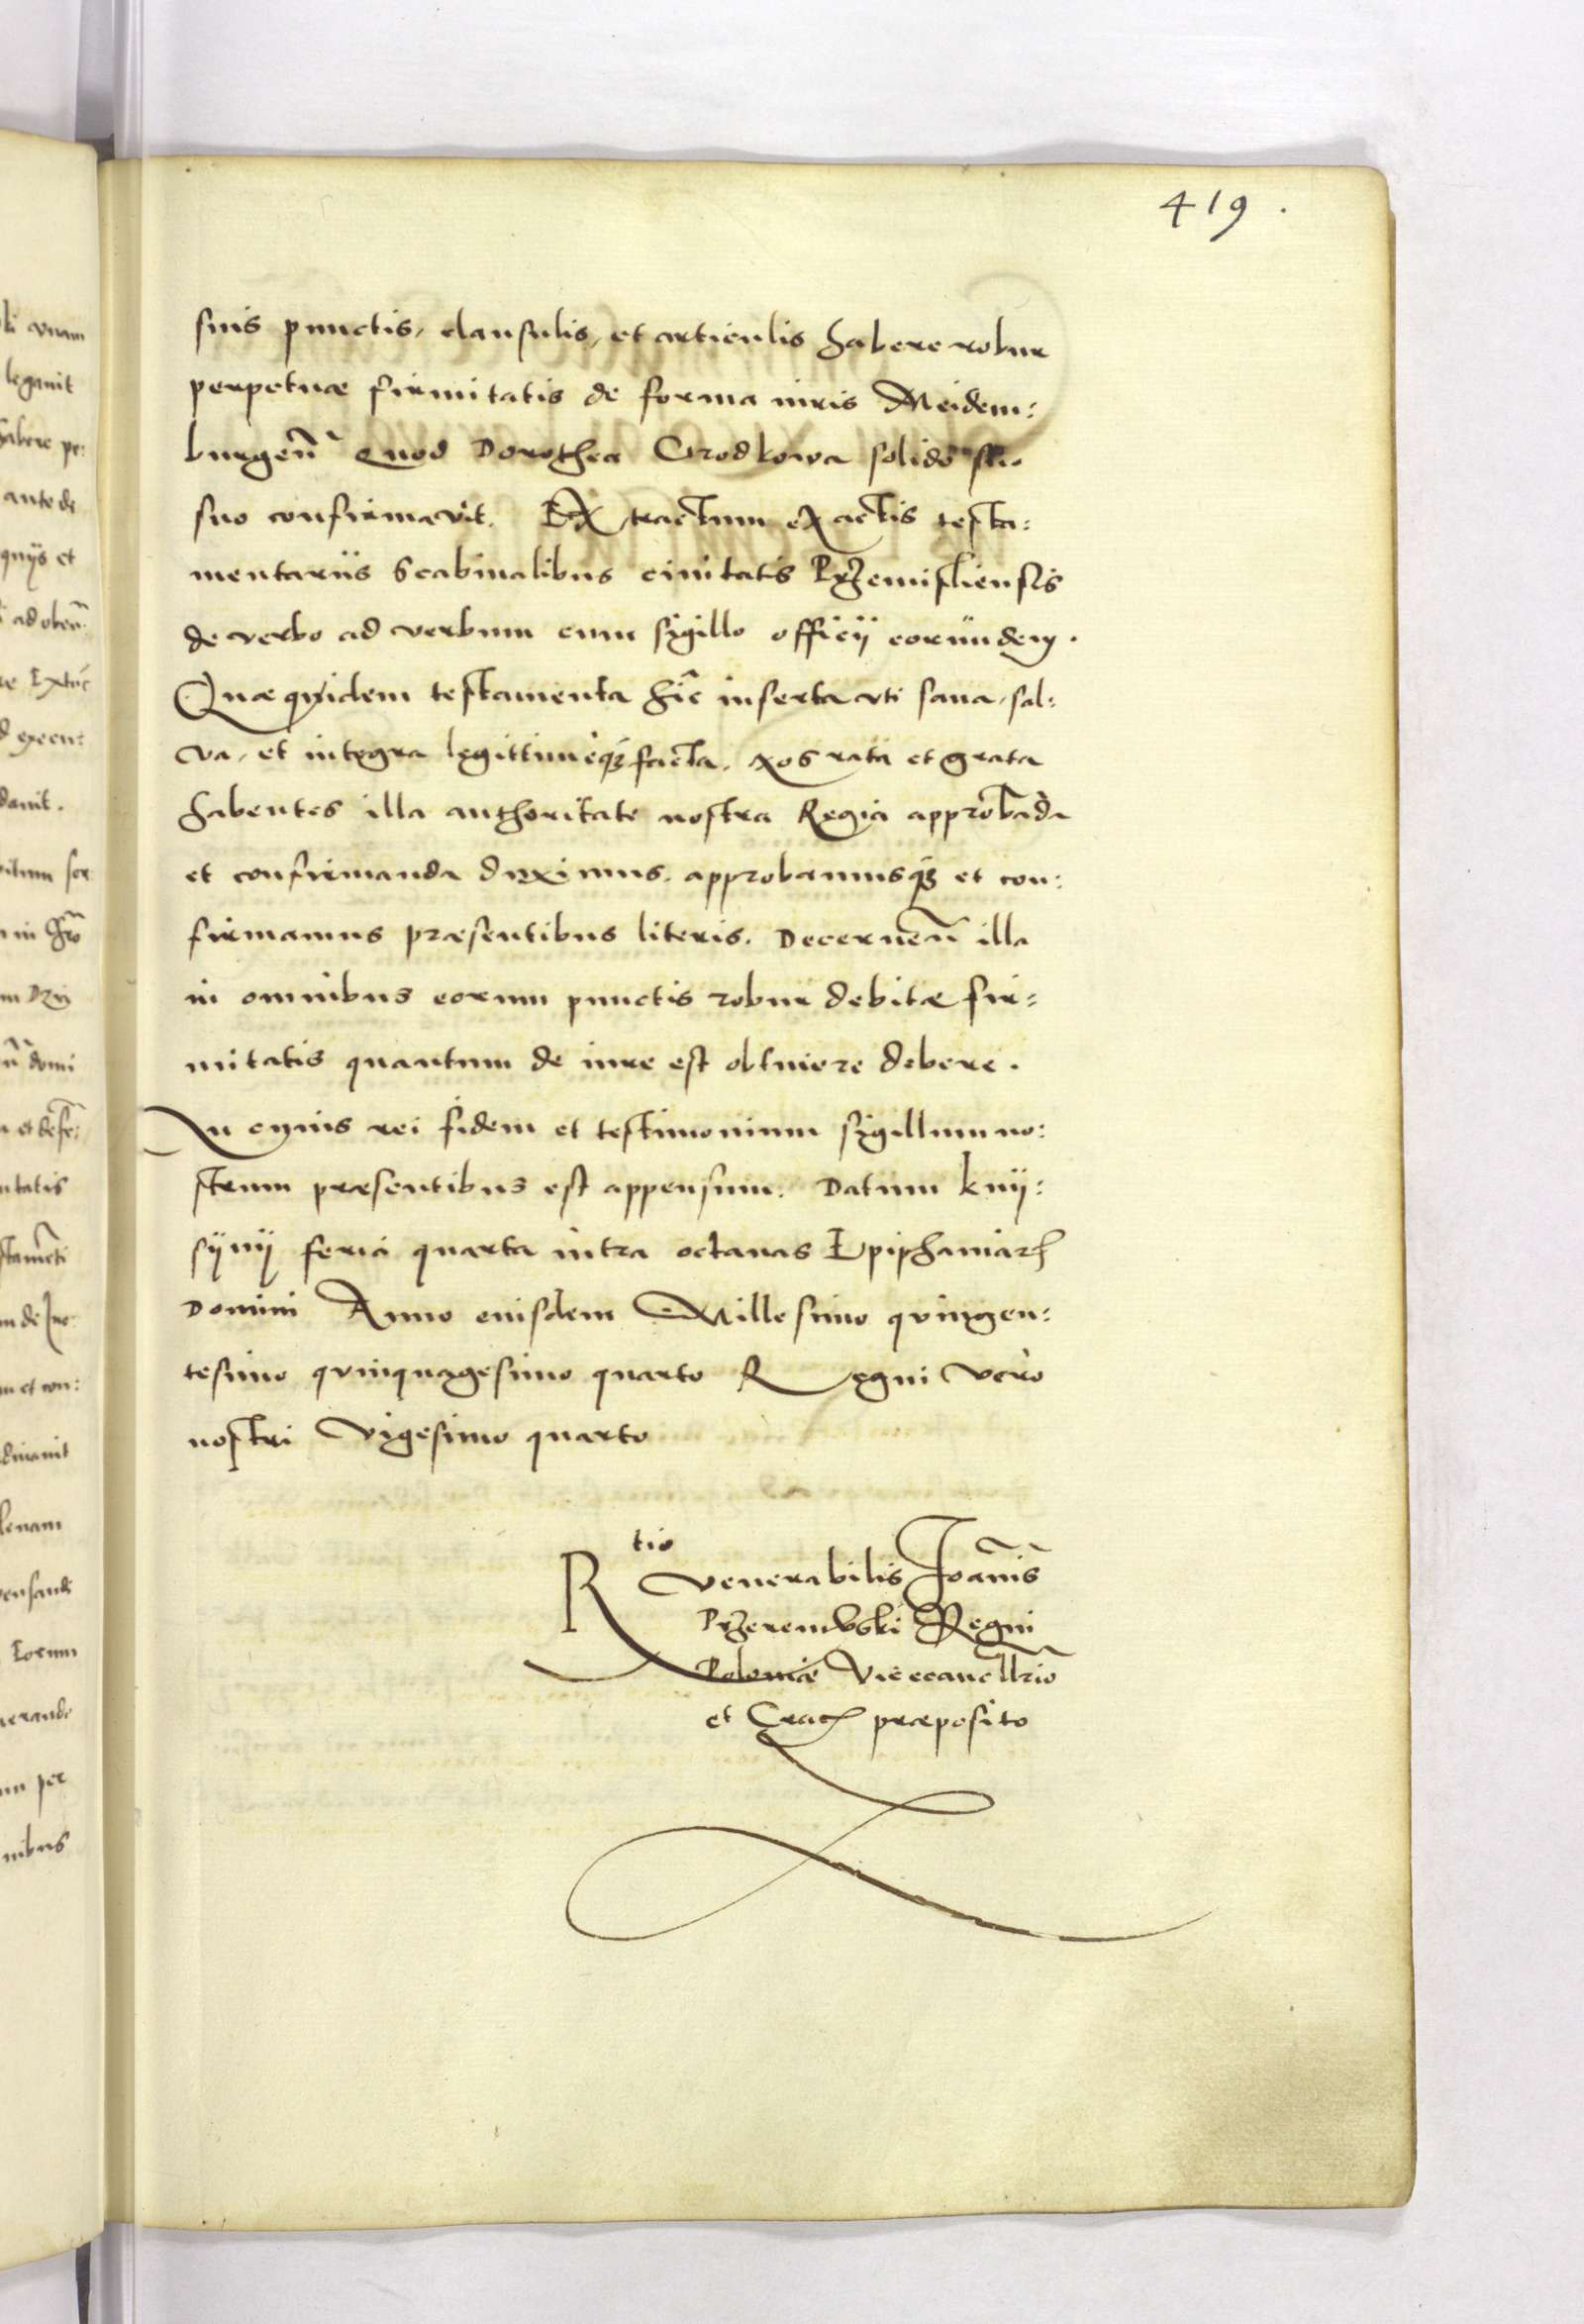 419.
suis punctis, clausulis, et articulis habere robur
perpetuae firmitatis de forma iuris Meidem:
burgen̄ Quod Dorothea Grodkowa solido
suo confirmavit. Extractum ex actis testa:
mentariis Scabinalibus civitatis Przemisliensis
de verbo ad verbum cum sigillo officij eorundem.
Quae quidem testamenta hic inserta uti sana, sal:
va, et integra legittimeqȝ facta. Nos rata et grata
habentes illa authoritate nostra Regia approbāda
et confirmanda duximus. approbamusqȝ et con:
firmamus praesentibus literis. Decernen̄ illa
in omnibus eorum punctis robur debitae fir:
mitatis quantum de iure est obtinere debere.
In cuius rei fidem et testimonium sigillum no:
strum praesentibus est appensum. Datum knij:
sijnij feria quarta intra octavas Epiphaniarꝝ
Domini Anno eiusdem Millesimo quingen:
tesimo quinquagesimo quarto Regni vero
nostri Vigesimo quarto
R tio Venerabilis Joānis
Przerembski Regni
Poloniae Vicecancllrio
et Crac̄ praeposito
li unam
legavit
habere pe:
ante de
quijs et
danit.
et con:
dinavit
per
nibus